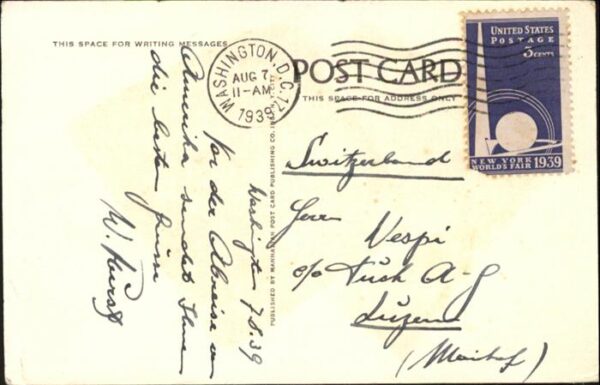 THIS SPACE FOR WRITING MESSAGES
POST CARD
THIS SPACE FOR ADDRESS ONLY
WASHINGTON, D.C. 17
AUG 7
11-AM
1939
UNITED STATES
POSTAGE
3 CENTS
NEW YORK
WORLD'S FAIR 1939
PUBLISHED BY MANHATTAN POST CARD PUBLISHING CO.
Washington 7.8.39
Vor der Abreise
Amerika sendet Ihnen
die besten Grüsse
W.
Switzerland
Herrn Vespi
c/o A-G
Luzern
(Maihof)